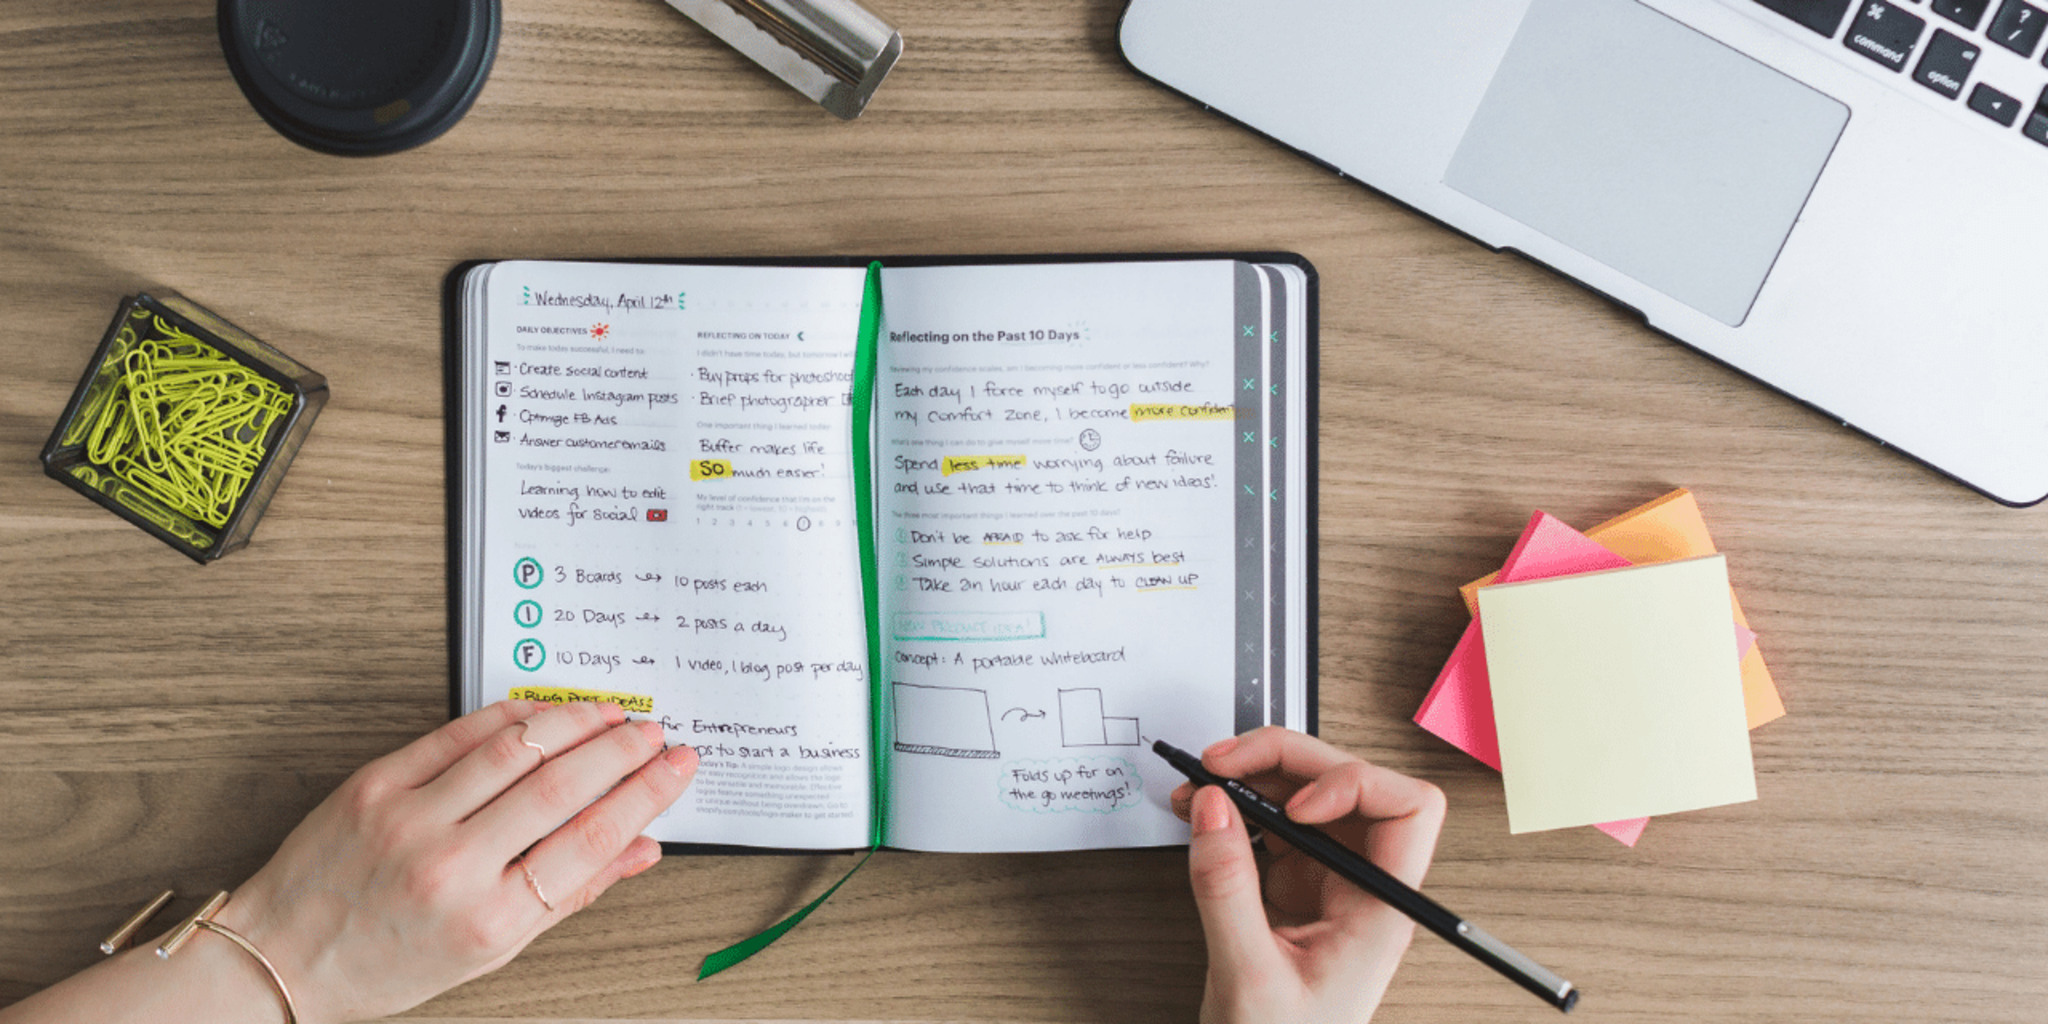 Wednesday, April 12th
DAILY OBJECTIVES
To make today successful, I need to:
· Create social content
· Schedule Instagram posts
· Optimize FB Ads
· Answer customer emails
Today's biggest challenge:
Learning how to edit
videos for social
REFLECTING ON TODAY
I didn't have time today, but tomorrow I will
· Buy props for photoshoot
· Brief photographer
One important thing I learned today:
Buffer makes life
SO much easier!
My level of confidence that I'm on the
right track (1 = lowest, 10 = highest):
1 2 3 4 5 6 7 8 9
P 3 Boards → 10 posts each
I 20 Days → 2 posts a day
F 10 Days → 1 video, 1 blog post per day
BLOG POST IDEAS:
for Entrepreneurs
to start a business
Today's Tip: A simple logo design allows
for easy recognition and allows the logo
to be versatile and memorable. Effective
logos feature something unexpected
or unique without being overdrawn. Go to
shopify.com/tools/logo-maker to get started
Reflecting on the Past 10 Days
Reviewing my confidence scales, am I becoming more confident or less confident? Why?
Each day I force myself to go outside
my comfort zone, I become more confident
What's one thing I can do to give myself more time?
Spend less time worrying about failure
and use that time to think of new ideas!
The three most important things I learned over the past 10 days?
Don't be AFRAID to ask for help
Simple solutions are ALWAYS best
Take an hour each day to CLEAN UP
NEW PRODUCT IDEA!
Concept: A portable whiteboard
Folds up for on
the go meetings!
⌘
command
alt
option
?
/